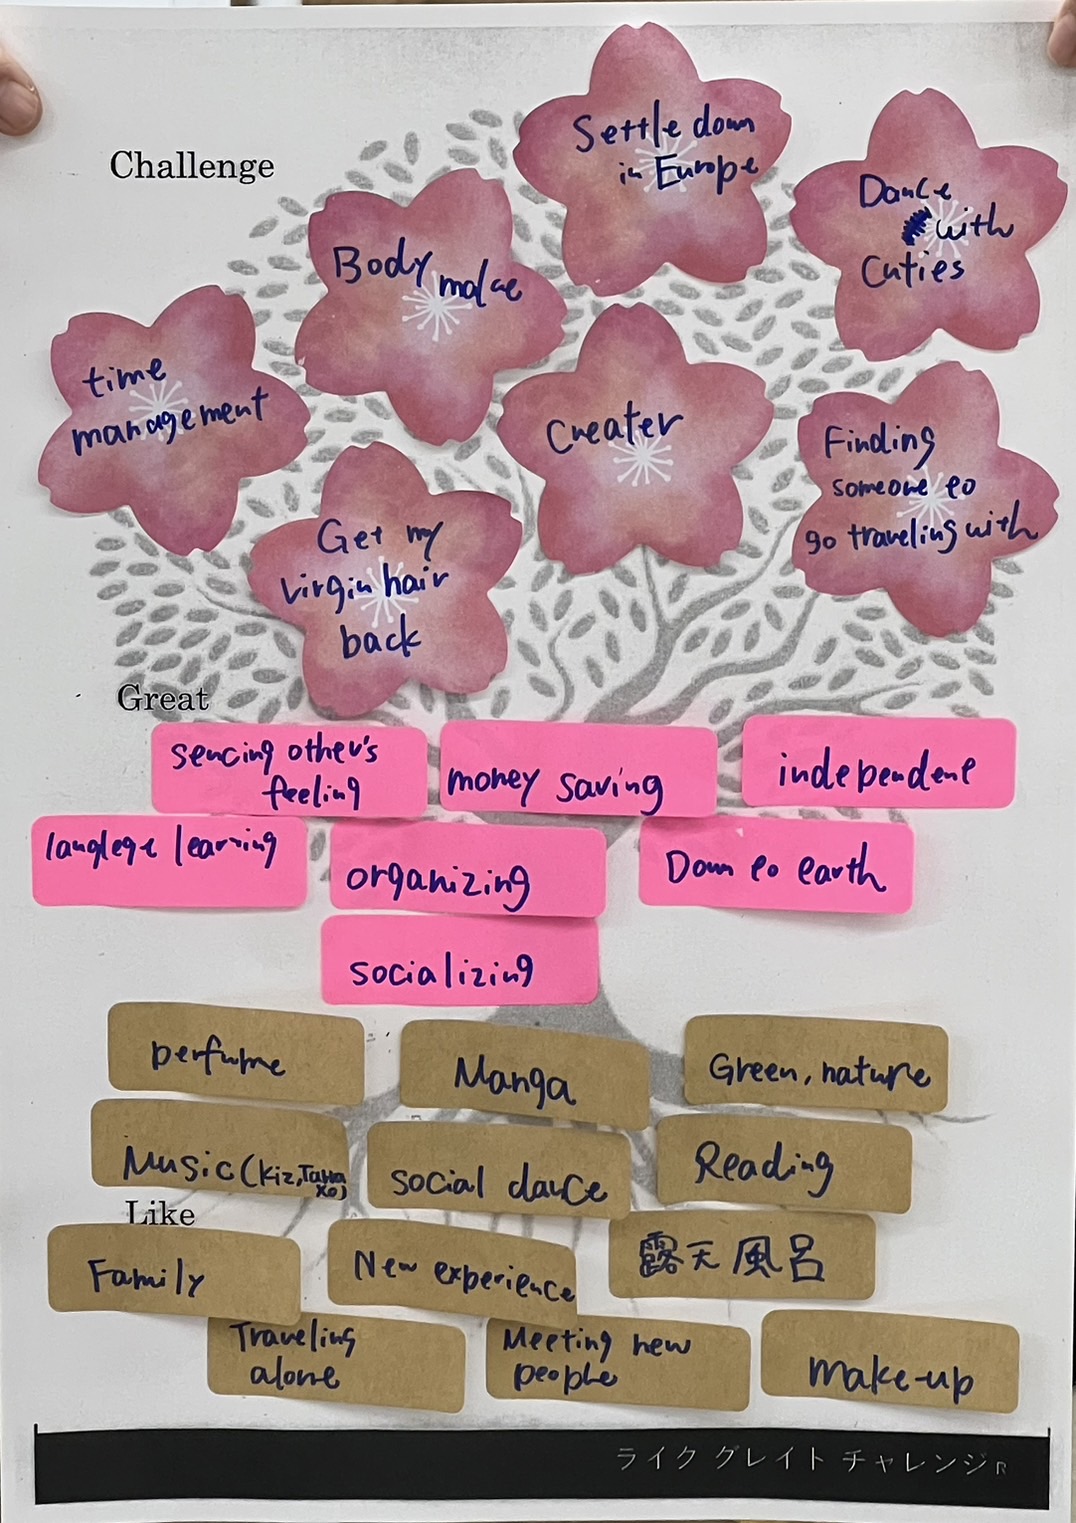 Challenge
Settle down
in Europe
Dance
with
Cuties
Body make
time
management
Creater
Finding
someone to
go traveling with
Get my
virgin hair
back
Great
sencing other's
feeling
money saving
independent
langlege learning
organizing
Down to earth
socializing
perfume
Manga
Green, nature
Music (Kiz,
social dance
Reading
Like
Family
New experience
露天風呂
Traveling
alone
Meeting new
people
make-up
ライク グレイト チャレンジR